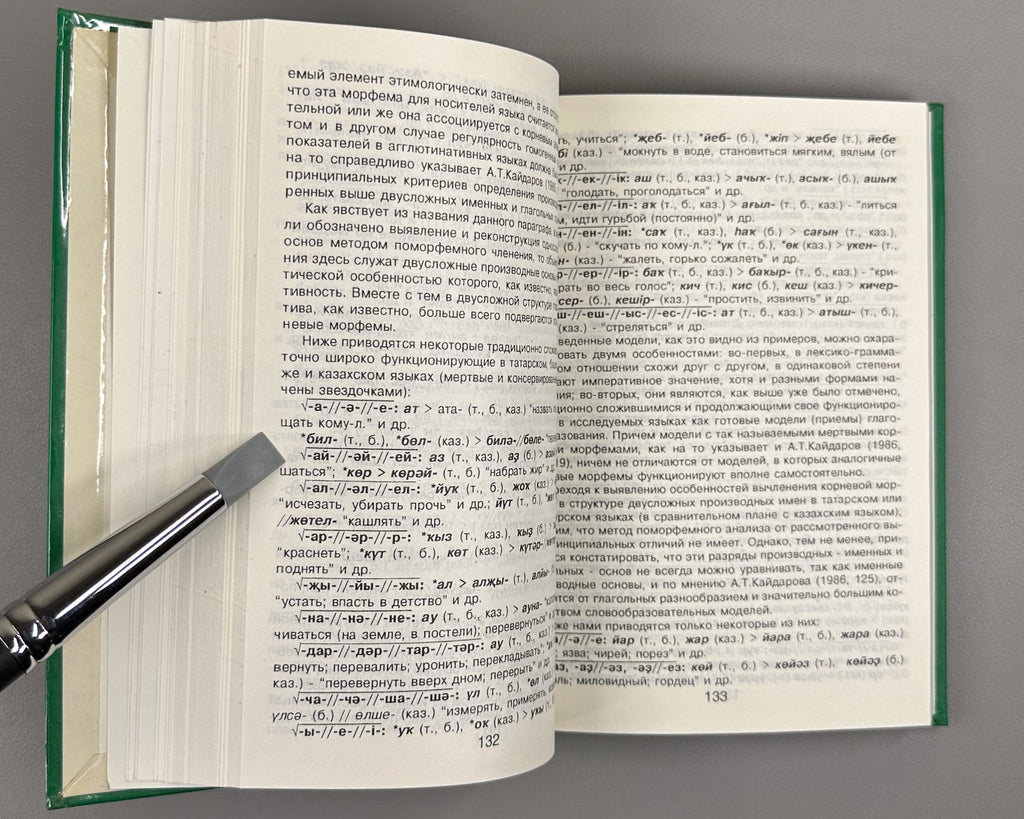 емый элемент этимологически затемнен, а ее
что эта морфема для носителей языка считается
тельной или же она ассоциируется с корневым
том и в другом случае регулярность гомогенных
показателей в агглютинативных языках должна
на то справедливо указывает А.Т.Кайдаров (1986,
принципиальных критериев определения
ренных выше двусложных именных и глагольных
Как явствует из названия данного параграфа,
ли обозначено выявление и реконструкция
основ методом поморфемного членения, то
ния здесь служат двусложные производные основы
тической особенностью которого, как известно,
тивность. Вместе с тем в двусложной структуре
тива, как известно, больше всего подвергаются
невые морфемы.
Ниже приводятся некоторые традиционно
точно широко функционирующие в татарском,
же и казахском языках (мертвые и
чены звездочками):
√-а-//-ә-//-е-: ат > ата- (т., б., каз.) "назвать
щать кому-л." и др.
*бил- (т., б.), *бөл- (каз.) > билә-//беле-
√-ай-//-әй-//-ей-: аз (т., б., каз.), аҙ (б.) >
шаться"; *көр > көрәй- (т., б.) "набрать жир" и
√-ал-//-әл-//-ел-: *йук (т., б.), жок (каз.) >
"исчезать, убирать прочь" и др.; йүт (т., б.),
//жөтел- "кашлять" и др.
√-ар-//-әр-//-р-: *кыз (т., б., каз.), ҡыҙ (б.) >
"краснеть"; *күт (т., б.), көт (каз.) > күтәр-
поднять" и др.
√-җы-//-йы-//-жы: *ал > алҗы- (т.),
"устать; впасть в детство" и др.
√-на-//-нә-//-не-: ау (т., б., каз.) > ауна-
чиваться (на земле, в постели); перевернуться"
√-дар-//-дәр-//-тар-//-тәр-: ау (т., б., каз.)
вернуть; перевалить; уронить; перекладывать",
каз.) - "перевернуть вверх дном; перерыть" и др.
√-ча-//-чә-//-ша-//-шә-: үл (т., б.), *өл
үлсә- (б.) // өлше- (каз.) "измерять, примерять,
√-ы-//-е-//-і-: *ук (т., б.), *ок (каз.) > укы
132
ть, учиться"; *җеб- (т.), *йеб- (б.), *жіп > җебе (т.), йебе
бі (каз.) - "мокнуть в воде, становиться мягким, вялым (от
и др.
к-//-ек-//-ік: аш (т., б., каз.) > ачык- (т.), асык- (б.), ашык
"голодать, проголодаться" и др.
л-//-ел-//-іл-: ак (т., б., каз.) > агыл- (т., б., каз.) - "литься
м, идти гурьбой (постоянно)" и др.
н-//-ен-//-ін: *сак (т., каз.), һак (б.) > сагын (т., каз.),
(б.) - "скучать по кому-л."; *үк (т., б.), *өк (каз.) > үкен- (т.,
н- (каз.) - "жалеть, горько сожалеть" и др.
р-//-ер-//-ір-: бак (т., б., каз.) > бакыр- (т., б., каз.) - "кри-
рать во весь голос"; кич (т.), кис (б.), кеш (каз.) > кичер-
сер- (б.), кешір- (каз.) - "простить, извинить" и др.
ш-//-еш-//-ыс-//-ес-//-іс-: ат (т., б., каз.) > атыш- (т., б.),
(каз.) - "стреляться" и др.
веденные модели, как это видно из примеров, можно охара-
овать двумя особенностями: во-первых, в лексико-грамма-
ом отношении схожи друг с другом, в одинаковой степени
ают императивное значение, хотя и разными формами на-
ния; во-вторых, они являются, как выше уже было отмечено,
ционно сложившимися и продолжающими свое функциониро-
в исследуемых языках как готовые модели (приемы) глаго-
зования. Причем модели с так называемыми мертвыми кор-
и морфемами, как на то указывает и А.Т.Кайдаров (1986,
19), ничем не отличаются от моделей, в которых аналогичные
вые морфемы функционируют вполне самостоятельно.
реходя к выявлению особенностей вычленения корневой мор-
в структуре двусложных производных имен в татарском или
рском языках (в сравнительном плане с казахским языком),
им, что метод поморфемного анализа от рассмотренного вы-
инципиальных отличий не имеет. Однако, тем не менее, при-
ся констатировать, что эти разряды производных - именных и
льных - основ не всегда можно уравнивать, так как именные
водные основы, и по мнению А.Т.Кайдарова (1986, 125), от-
тся от глагольных разнообразием и значительно большим ко-
твом словообразовательных моделей.
же нами приводятся только некоторые из них:
//-ә//-е: йар (т., б.), жар (каз.) > йара (т., б.), жара (каз.)
; язва; чирей; порез" и др.
аз, -аҙ//-әз, -әҙ//-ез: көй (т., б.) > көйәз (т.), көйәҙ (б.)
ль; миловидный; гордец" и др.
133